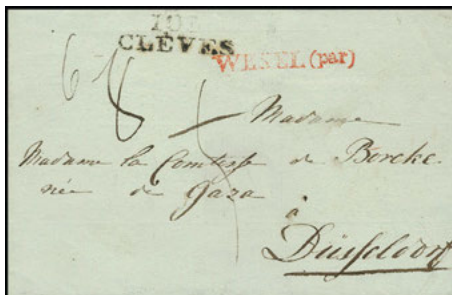 CLÈVES
WESEL (par)
Madame
Madame la Comtesse de Borcke
née de Gaza
à
Düsseldorf